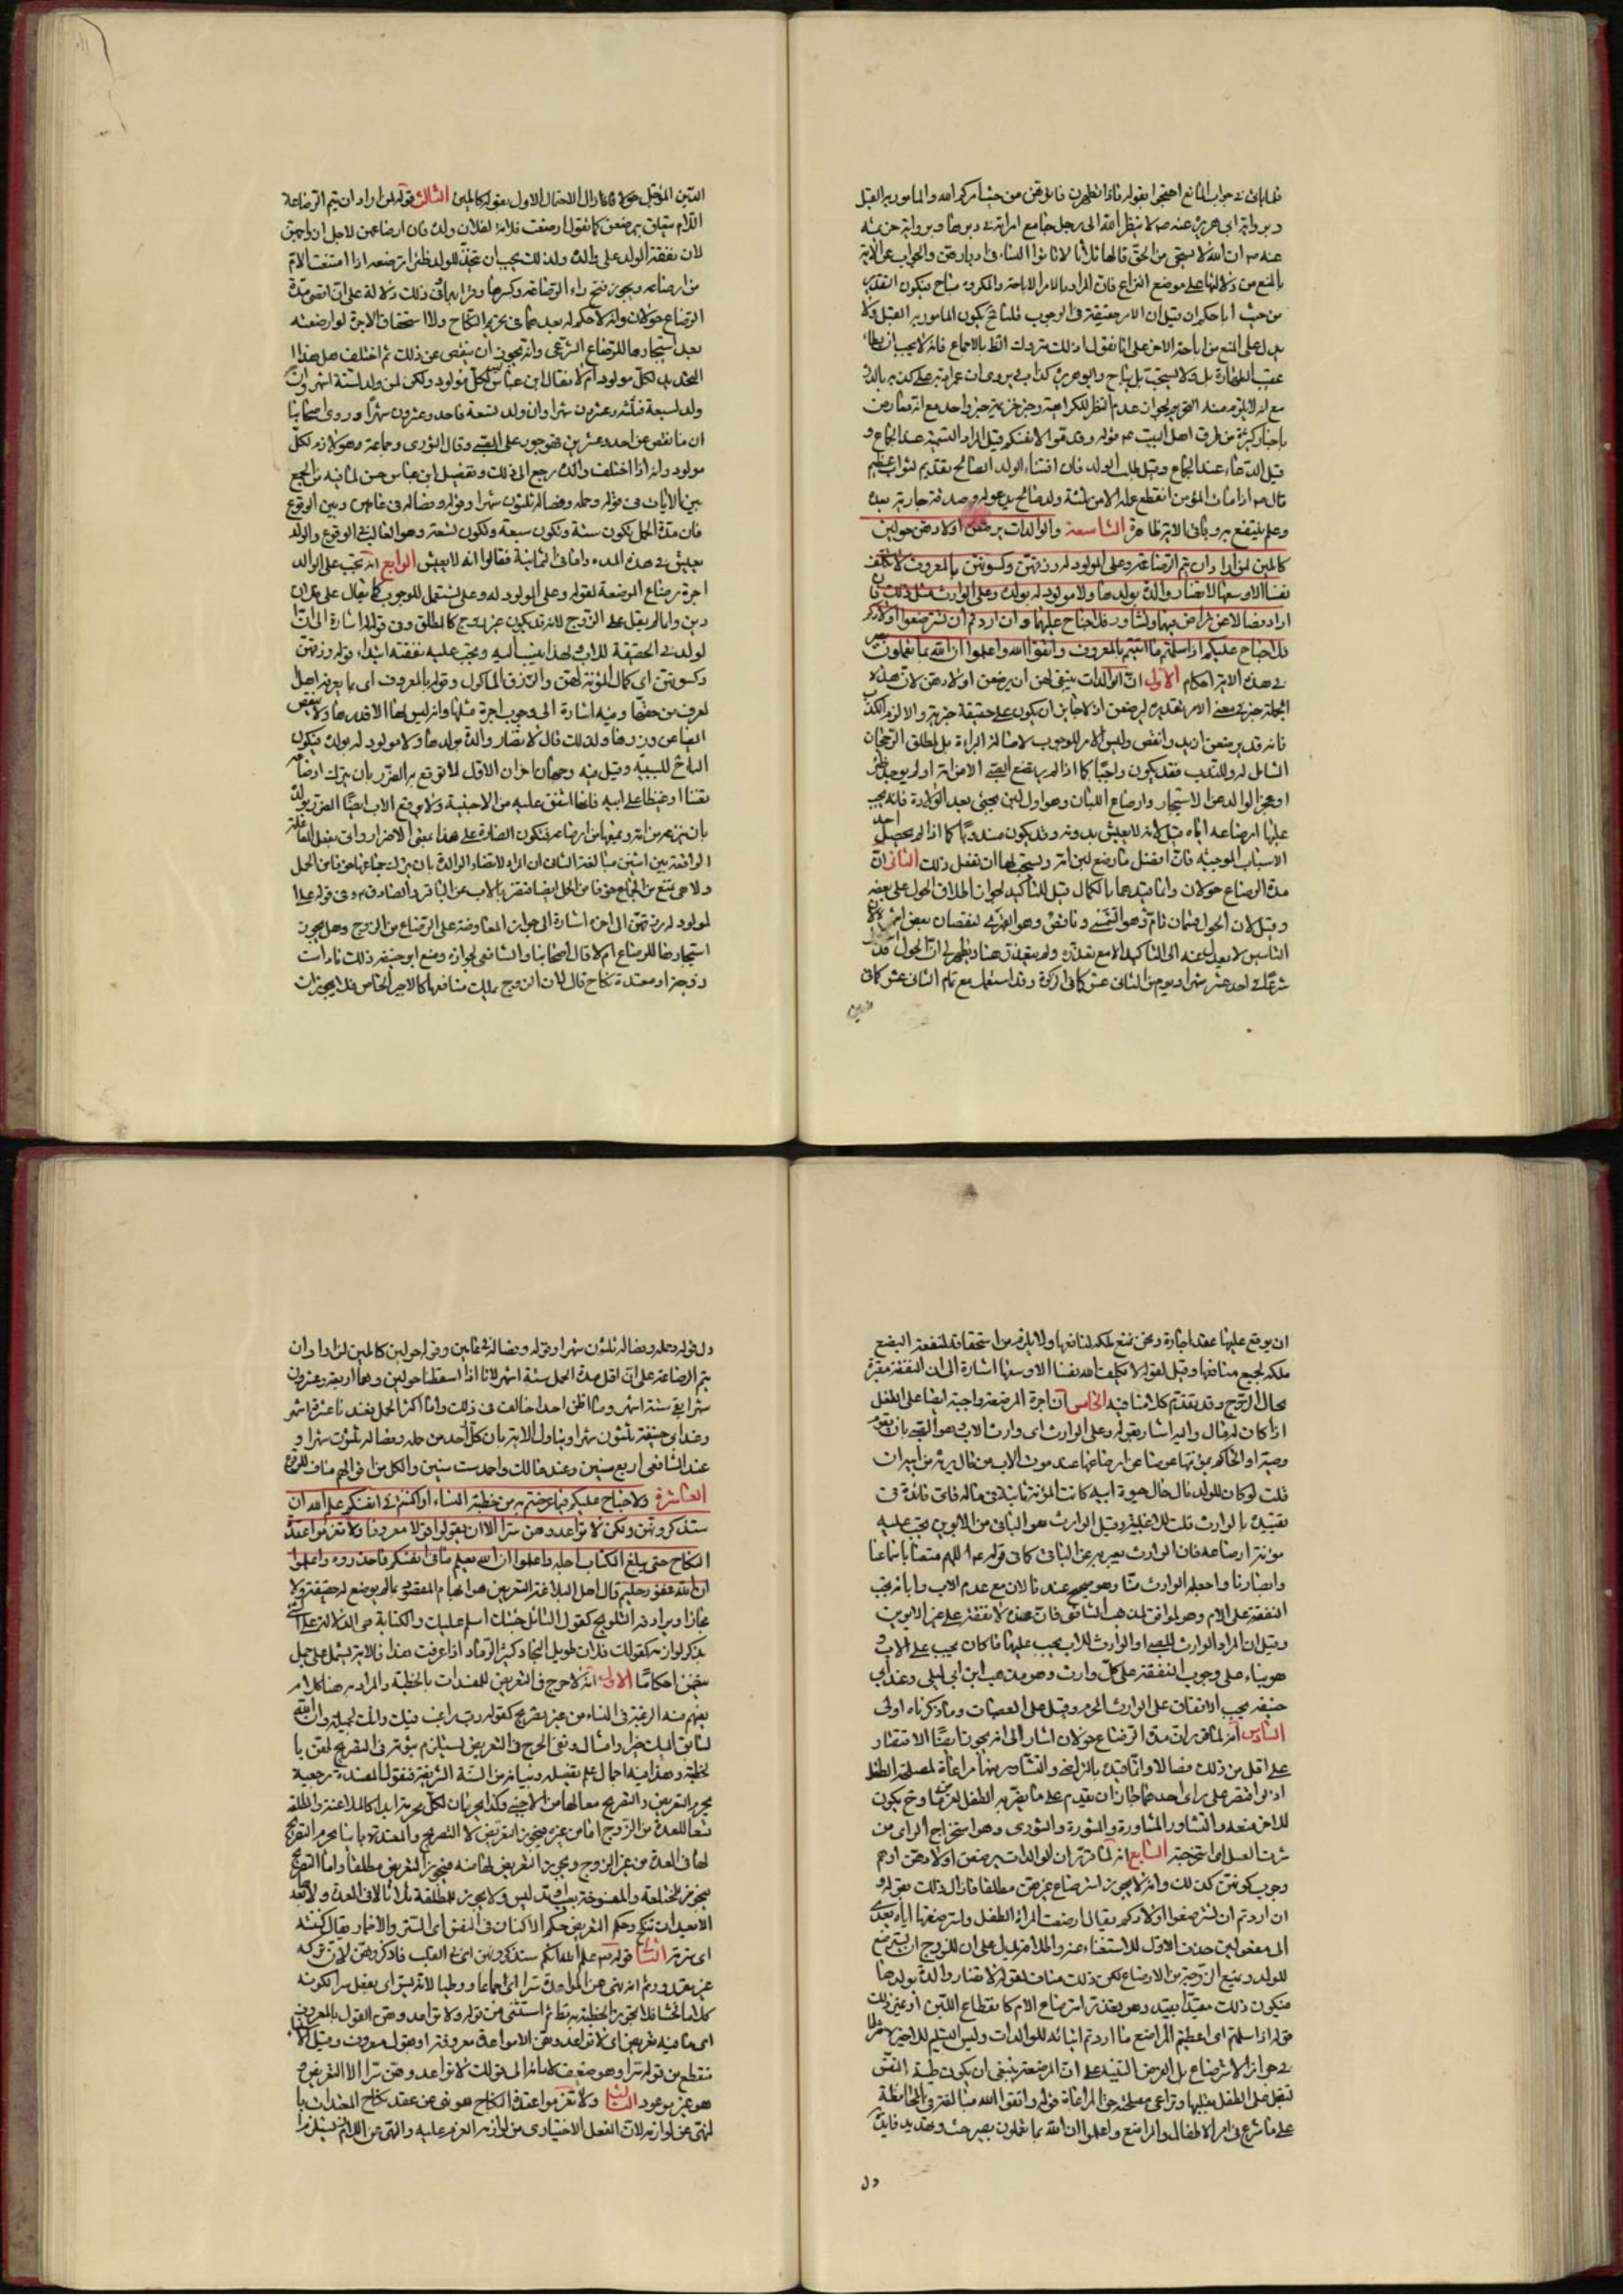 فلما يأتي في جواب المانع احتجوا بقوله فاذا تطهرن فاتوهن من حيث امركم الله والمأمور به القبل
وبرواية ابي هريرة عنه ص لا ينظر الله الى رجل جامع امراته في دبرها وبرواية خزيمة
عنه ص ان الله لا يستحيي من الحق قالها ثلاثا لا تاتوا النساء في ادبارهن والجواب عن الآية
بالمنع من دلالتها على موضع النزاع فان المراد بالامر الاباحة والمكروه مباح فيكون التقدير
من حيث اباحكم ان قيل ان الامر حقيقة في الوجوب قلنا فح يكون المأمور به القبل ولا
يدل على المنع من اباحة الآخر على
عقيب الطهارة بل ولا يستحب بل يباح وابو هريرة
باخبار كثيرة من طرق اهل البيت ع قوله وقدموا لانفسكم قيل المراد التسمية عند الجماع و
قيل الدعاء عند الجماع وقيل طلب الولد فان اقتناء الولد الصالح تقديم لثواب عظيم
قال ص اذا مات المؤمن انقطع عمله الا من ثلثة ولد صالح يدعو له وصدقة جارية بعده
وعلم ينتفع به وباقي الاية ظاهرة التاسعة والوالدات يرضعن اولادهن حولين
كاملين لمن اراد ان يتم الرضاعة وعلى المولود له رزقهن وكسوتهن بالمعروف لا تكلف
نفس الا وسعها لا تضار والدة بولدها ولا مولود له بولده وعلى الوارث مثل ذلك فان
ارادا فصالا عن تراض منهما وتشاور فلا جناح عليهما وان اردتم ان تسترضعوا اولادكم
فلا جناح عليكم اذا سلمتم ما اتيتم بالمعروف واتقوا الله واعلموا ان الله بما تعملون بصير
في هذه الاية احكام الاول ان الوالدات ينبغي لهن ان يرضعن اولادهن لان هذه
الجملة خبر في معنى الامر تقديره ليرضعن اذ لا جايز ان يكون على حقيقة خبريته والا لزم الكذب
فانه قد يرضعن ازيد وانقص وليس الامر للوجوب لاصالة البراءة بل لمطلق الرجحان
الشامل له وللندب فقد يكون واجبا كما اذا لم يرتضع الصبي الا من امه او لم يوجد ظئر
او عجز الوالد عن الاستيجار وارضاع اللباء وهو اول لبن يجيئ بعد الولادة فانه يجب
عليها ارضاعه اياه قيل لانه لا يعيش بدونه وقد يكون مندوبا كما اذا لم يحصل احد
الاسباب الموجبة فان افضل ما رضع لبن امه ويستحب لها ان تفعل ذلك الثاني ان
مدة الرضاع حولان وانما قيدهما بالكمال قيل للتاكيد لجواز اطلاق الحول على بعضه
وقيل لان الحول ضمان تام وهو الشمسي وناقص وهو القمري لنقصان بعض اشهره لان
التاسيس لا يعدل عنه الى التاكيد الا مع تعذره ولم يتعذر هنا ويظهر لي ان الحول قد
شرعا في احد عشر شهرا ويوم من الثاني عشر كما في الزكوة وقد استعمل مع تمام الثاني عشر كما في
الدين المؤجل حولا فازال الاحتمال الاول بقوله كاملين الثالث قوله لمن اراد ان يتم الرضاعة
اللام متعلق بيرضعن كما تقول ارضعت فلانة لفلان ولده فان ارضاعهن لاجل ازواجهن
لان نفقة الولد على والده ولذلك يجب ان يتخذ للولد ظئرا ترضعه اذا امتنعت الام
من ارضاعه ويجوز فتح راء الرضاعة وكسرها وقرئ بهما وفي ذلك دلالة على ان اقصى مدة
الرضاع حولان وانه لا حكم له بعدهما في تحريم النكاح ولا استحقاق الاجرة لو ارضعته
بعد استيجارها للرضاع الشرعي وانه يجوز ان ينقص عن ذلك ثم اختلف هل هذا
التحديد لكل مولود ام لا فقال ابن عباس ليس لكل مولود ولكن لمن ولد لستة اشهر وان
ولد لسبعة فثلثة وعشرون شهرا وان ولد لتسعة فاحد وعشرون شهرا وروى اصحابنا
ان ما نقص عن احد وعشرين فهو جور على الصبي وقال الثوري وجماعة وهو لازم لكل
مولود وانه اذا اختلف والداه رجع الى ذلك وتفصيل ابن عباس حسن لما فيه من الجمع
بين الايات في قوله وحمله وفصاله ثلثون شهرا وقوله وفصاله في عامين وبين الوقوع
فان مدة الحمل تكون ستة وتكون سبعة وتكون تسعة وهو الغالب في الوقوع والولد
يعيش في هذه المدد واما في الثمانية فقالوا انه لا يعيش الرابع انه تجب على الوالد
اجرة رضاع المرضعة لقوله وعلى المولود له وعلى تستعمل للوجوب كما يقال على فلان
دين وانما لم يقل على الزوج لانه قد يكون غير زوج كالمطلق وفي قوله له اشارة الى ان
الولد في الحقيقة للاب ولهذا ينسب اليه ويجب عليه نفقته ابتداء قوله رزقهن
وكسوتهن اي كمال المؤنة لهن والرزق المأكول وقوله بالمعروف اي بما يعرفه اهل
العرف من حقها وفيه اشارة الى وجوب اجرة مثلها وانه ليس لها الا قدرها ولا ينقص
ايضا عن قدرها ولذلك قال لا تضار والدة بولدها ولا مولود له بولده فيكون
الباء للسببية وقيل فيه وجهان اخران الاول لا توقع به الضرر بان يترك ارضاعه
تعنتا او غيظا على ابيه فانها اشفق عليه من الاجنبية ولا يوقع الاب ايضا الضرر بولده
بان ينزعه من امه ويمنعها من ارضاعه فتكون المضارة على هذا بمعنى الاضرار واتى بفعل المفاعلة
الواقعة بين اثنين مبالغة الثاني ان المراد لا تضار الوالدة بان يترك جماعها خوفا من الحمل
ولا هي تمتنع من الجماع خوفا من الحمل ايضا فتضر بالاب عن الباقر والصادق ع وفي قوله على
المولود له رزقهن الى اخره اشارة الى جواز المعاوضة على الرضاع من الزوج وهل يجوز
استيجارها للرضاع ام لا قال اصحابنا والشافعي بجوازه ومنع ابو حنيفة ذلك ما دامت
زوجة او معتدة نكاح قال لان الزوج يملك منافعها كالاجير الخاص فلا يجوز ان
ان يوقع عليها عقد اجارة ونحن نمنع ملكه لمنافعها ولا يلزم من استحقاقه لمنفعة البضع
ملكه لجميع منافعها وقيل لقوله لا يكلف الله نفسا الا وسعها اشارة الى ان النفقة مقدرة
بحال الزوج وقد تقدم كلامنا فيه الخامس ان اجرة المرضعة واجبة ايضا على الطفل
اذا كان له مال واليه اشار بقوله وعلى الوارث اي وارث الاب وهو الصبي بان يقوم
وصيه او الحاكم بمؤنتها عوضا عن ارضاعها عند موت الاب من مال يرثه من ابيه ان
قلت لو كان للولد مال حال حيوة ابيه كانت المؤنة ثابتة في ماله فاي فائدة في
تقييده بالوارث قلت للاغلبية وقيل الوارث هو الباقي من الابوين يجب عليه
مؤنة ارضاعه فان الوارث يعبر به عن الباقي كما في قوله ع اللهم متعنا باسماعنا
وابصارنا واجعله الوارث منا وهو صحيح عندنا لان مع عدم الاب وابائه يجب
النفقة على الام وهو الموافق لمذهب الشافعي فان عنده لا نفقة على غير الابوين
وقيل ان المراد الوارث للصبي او الوارث للاب يجب عليها ما كان يجب على الاب و
هو بناء على وجوب النفقة على كل وارث وهو مذهب ابن ابي ليلى وعند ابي
حنيفة يجب الانفاق على الوارث المحرم وقيل على العصبات وما ذكرناه اولى
السادس انه لما قرر ان مدة الرضاع حولان اشار الى انه يجوز ايضا الاقتصار
على اقل من ذلك فصالا وانما قيده بالتراضي والتشاور منهما مراعاة لمصلحة الطفل
اذ لو اقتصر على راي احدهما جاز ان يقدم على ما يضر به الطفل لغرض ما وح يكون
للاخر منعه والتشاور المشاورة والمشورة والشورى وهو استخراج الراي من
شرت العسل اي استخرجته السابع انه لما قرر ان الوالدات يرضعن اولادهن اوهم
وجوب كونهن كذلك وانه لا يجوز استرضاع غيرهن مطلقا فازال ذلك بقوله و
ان اردتم ان تسترضعوا اولادكم يقال ارضعت المراة الطفل واسترضعتها اياه يتعدى
الى مفعولين حذف الاول للاستغناء عنه واطلاقه يدل على ان للزوج ان يسترضع
للولد ويمنع الزوجة من الارضاع لكن ذلك مناف لقوله لا تضار والدة بولدها
فيكون ذلك مقيدا بقيد وهو تعذر ارضاع الام كانقطاع اللبن او غير ذلك
قوله اذا سلمتم اي اعطيتم المراضع ما اردتم ايتائه للوالدات وليس التسليم للاجرة شرطا
في جواز الاسترضاع بل الغرض التنبيه على ان المرضعة ينبغي ان يكون طيبة النفس
تقبل على الطفل بقلبها وتراعي مصلحته حق المراعاة قوله واتقوا الله مبالغة في المحافظة
على ما شرع في امر الاطفال والمراضع واعلموا ان الله بما تعملون بصير حث وتهديد فايدة
دل
دل قوله وحمله وفصاله ثلثون شهرا وقوله وفصاله في عامين وقوله حولين كاملين لمن اراد ان
يتم الرضاعة على ان اقل مدة الحمل ستة اشهر لانا اذا اسقطنا حولين وهما اربعة وعشرون
شهرا بقي ستة اشهر وما اظن احدا خالف في ذلك واما اكثر الحمل فعندنا عشرة اشهر
وعند ابي حنيفة ثلثون شهرا ويتاول الاية بان كل واحد من حمله وفصاله ثلثون شهرا و
عند الشافعي اربع سنين وعند مالك واحمد ست سنين والكل
العاشرة ولا جناح عليكم فيما عرضتم به من خطبة النساء او اكننتم في انفسكم علم الله ان
ستذكرونهن ولكن لا تواعدوهن سرا الا ان تقولوا قولا معروفا ولا تعزموا عقدة
النكاح حتى يبلغ الكتاب اجله واعلموا ان الله يعلم ما في انفسكم فاحذروه واعلموا
ان الله غفور حليم قال اهل البلاغة التعريض هو ايهام المقصود بما لم يوضع له حقيقة ولا
مجازا ويرادفه التلويح كقول السائل جئتك اسلم عليك والكناية هي الدلالة على الشئ
بذكر لوازمه كقولك فلان طويل النجاد وكثير الرماد اذا عرفت هذا فالاية تشتمل على جمل
تتضمن احكاما الاول انه لا حرج في التعريض للمعتدات بالخطبة والمراد به هنا كلام
يفهم منه الرغبة في النساء من غير تصريح كقوله رب راغب فيك وانك لجميلة وان الله
لسائق اليك خيرا وامثاله ونفي الحرج في التعريض يستلزم ثبوته في التصريح لهن با
لخطبة وهذا فيه اجمال علم تفصيله وبيانه من السنة الشريفة فنقول المعتدة رجعية
يحرم التعريض والتصريح معا لها من الاجنبي وكذا يحرمان لكل محرمة ابدا كالملاعنة والمطلقة
تسعا للعدة من الزوج اما من غيره فيجوز التعريض لا التصريح والمعتدة باينا يحرم التصريح
لها في العدة من غير الزوج ويجوز التعريض لها منه فيجوز التعريض مطلقا واما التصريح
اي ستره الثاني قوله علم الله انكم ستذكرونهن اي في القلب فاذكروهن لان تركه
هو غير موعود الثالث ولا تعزموا عقدة النكاح هو نهي عن عقد نكاح المعتدات با
لنهي عن لوازمه لان الفعل الاختياري من لوازمه العزم عليه والنهي عن اللازم يستلزم